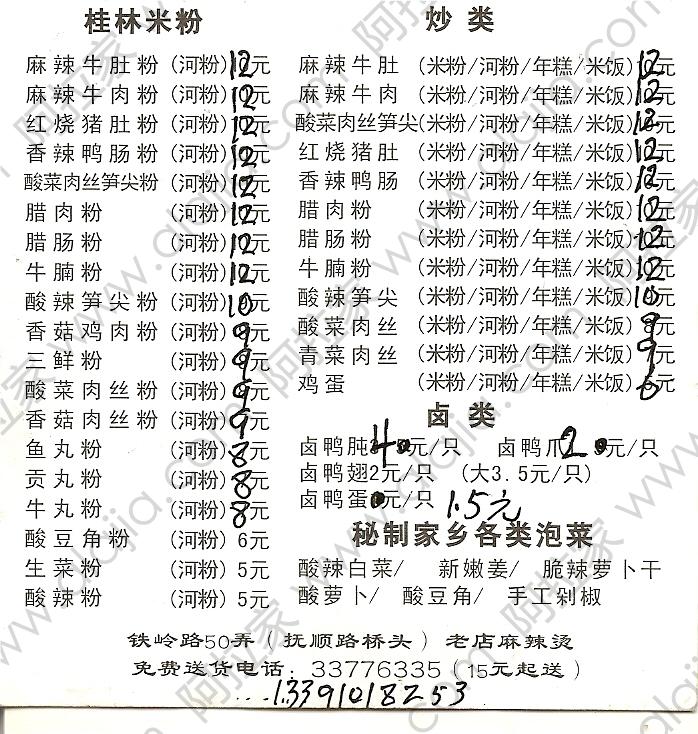 桂林米粉
麻辣牛肚粉(河粉)12元
麻辣牛肉粉(河粉)12元
红烧猪肚粉(河粉)12元
香辣鸭肠粉(河粉)12元
酸菜肉丝笋尖粉(河粉)12元
腊肉粉(河粉)12元
腊肠粉(河粉)12元
牛腩粉(河粉)12元
酸辣笋尖粉(河粉)10元
香菇鸡肉粉(河粉)9元
三鲜粉(河粉)9元
酸菜肉丝粉(河粉)9元
香菇肉丝粉(河粉)9元
鱼丸粉(河粉)8元
贡丸粉(河粉)8元
牛丸粉(河粉)8元
酸豆角粉(河粉)6元
生菜粉(河粉)5元
酸辣粉(河粉)5元
炒类
麻辣牛肚(米粉/河粉/年糕/米饭)12元
麻辣牛肉(米粉/河粉/年糕/米饭)12元
酸菜肉丝笋尖(米粉/河粉/年糕/米饭)12元
红烧猪肚(米粉/河粉/年糕/米饭)12元
香辣鸭肠(米粉/河粉/年糕/米饭)12元
腊肉粉(米粉/河粉/年糕/米饭)12元
腊肠粉(米粉/河粉/年糕/米饭)12元
牛腩粉(米粉/河粉/年糕/米饭)12元
酸辣笋尖(米粉/河粉/年糕/米饭)10元
酸菜肉丝(米粉/河粉/年糕/米饭)9元
青菜肉丝(米粉/河粉/年糕/米饭)9元
鸡蛋(米粉/河粉/年糕/米饭)6元
卤类
卤鸭肫4元/只 卤鸭爪2元/只
卤鸭翅2元/只 (大3.5元/只)
卤鸭蛋元/只 1.5元
秘制家乡各类泡菜
酸辣白菜/ 新嫩姜/ 脆辣萝卜干
酸萝卜/ 酸豆角/ 手工剁椒
铁岭路50弄(抚顺路桥头)老店麻辣烫
免费送货电话:33776335(15元起送)
13391018253
阿拉家 www.alajia.com